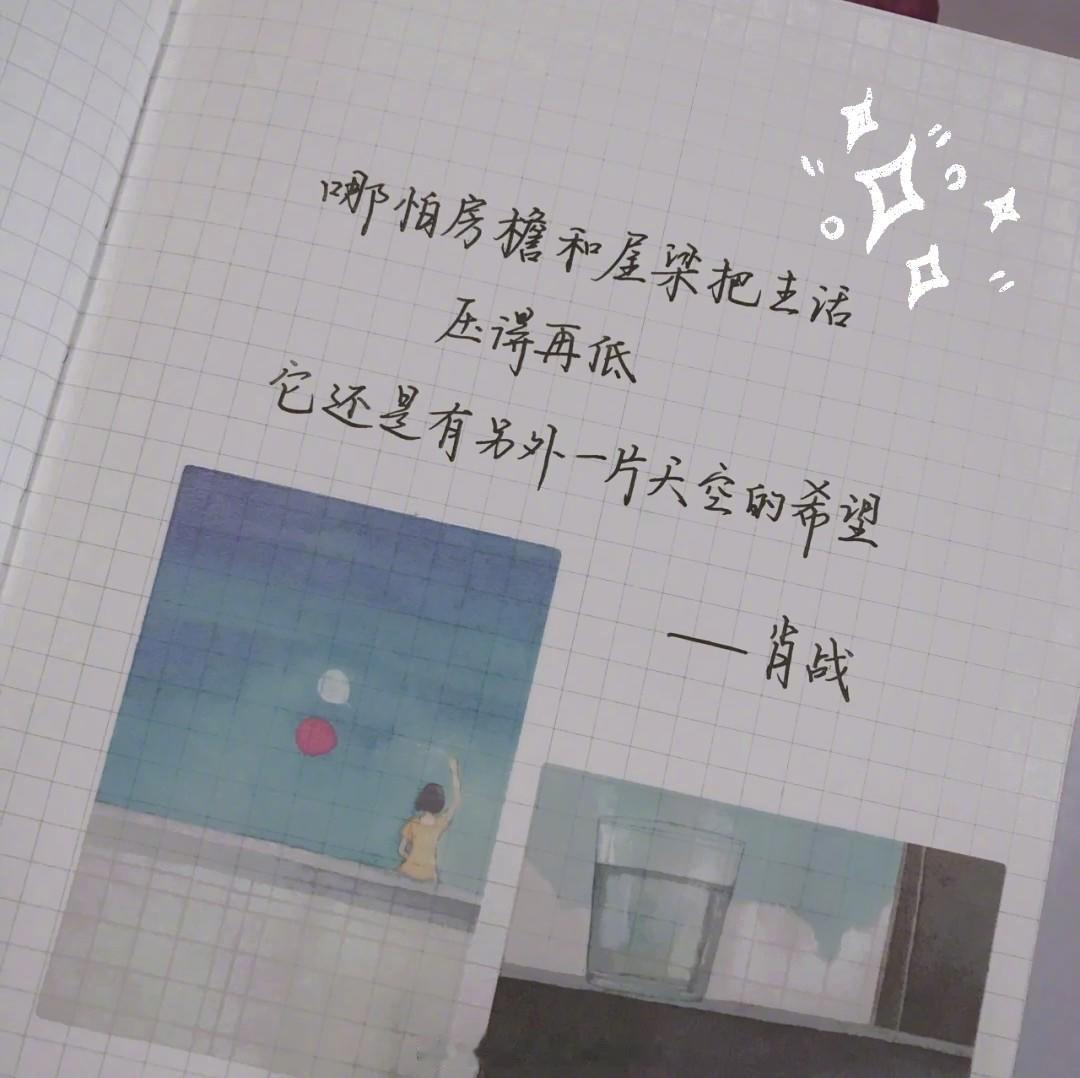 哪怕房檐和屋梁把生活
压得再低
它还是有另外一片天空的希望
——肖战